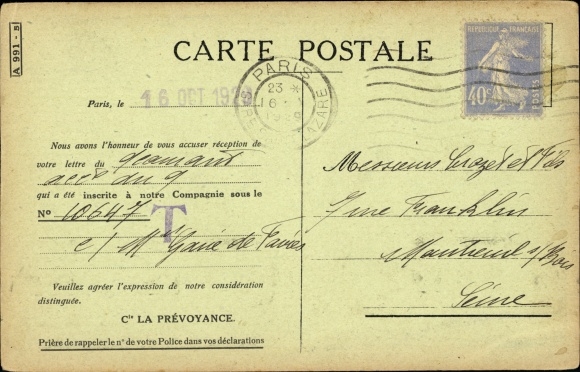 A 991 - 5
CARTE POSTALE
RÉPUBLIQUE FRANÇAISE
40c
POSTES
PARIS
23 *
16
GARE
Paris, le 16 OCT 192
Nous avons l'honneur de vous accuser réception de
votre lettre du
acc du 9
qui a été inscrite à notre Compagnie sous le
No 10647
T
c/ Mme de
Veuillez agréer l'expression de notre considération
distinguée.
Cie LA PRÉVOYANCE.
Prière de rappeler le n° de votre Police dans vos déclarations
Messieurs Crozet et Fils
7 rue Franklin
Montreuil s/ Bois
Seine